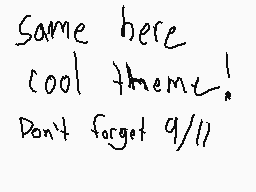 same here
cool theme!
Don't forget 9/11